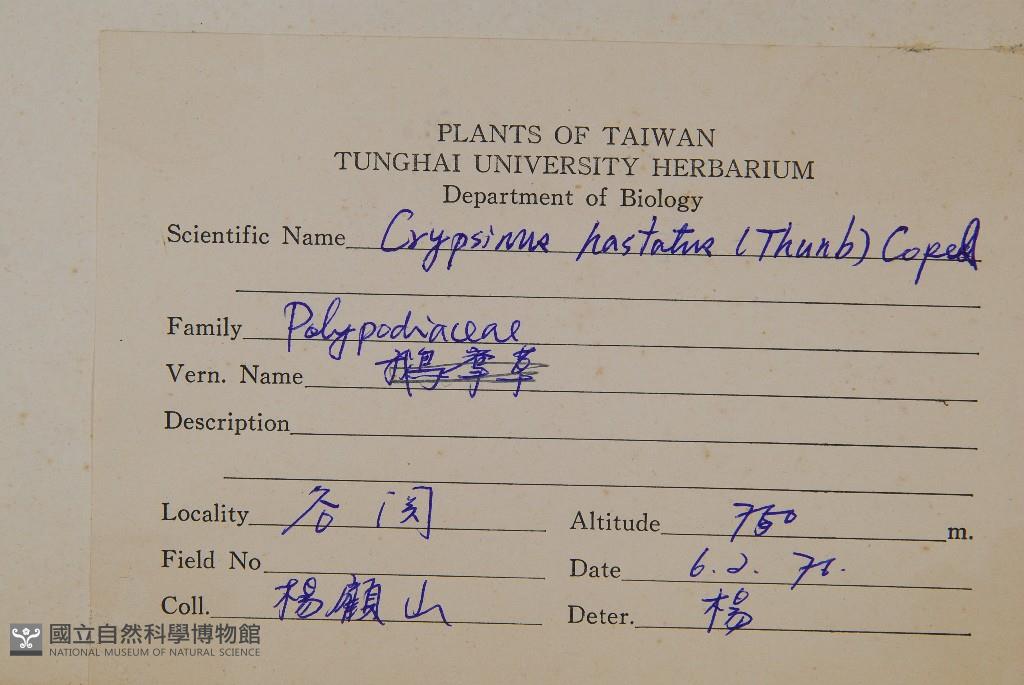 PLANTS OF TAIWAN
TUNGHAI UNIVERSITY HERBARIUM
Department of Biology
Scientific Name Crypsinus hastatus (Thunb) Copel
Family Polypodiaceae
Vern. Name 鵝掌草
Description
Locality 谷関
Altitude 750 m.
Field No
Date 6. 2. 71.
Coll. 楊顧山
Deter. 楊
國立自然科學博物館
NATIONAL MUSEUM OF NATURAL SCIENCE